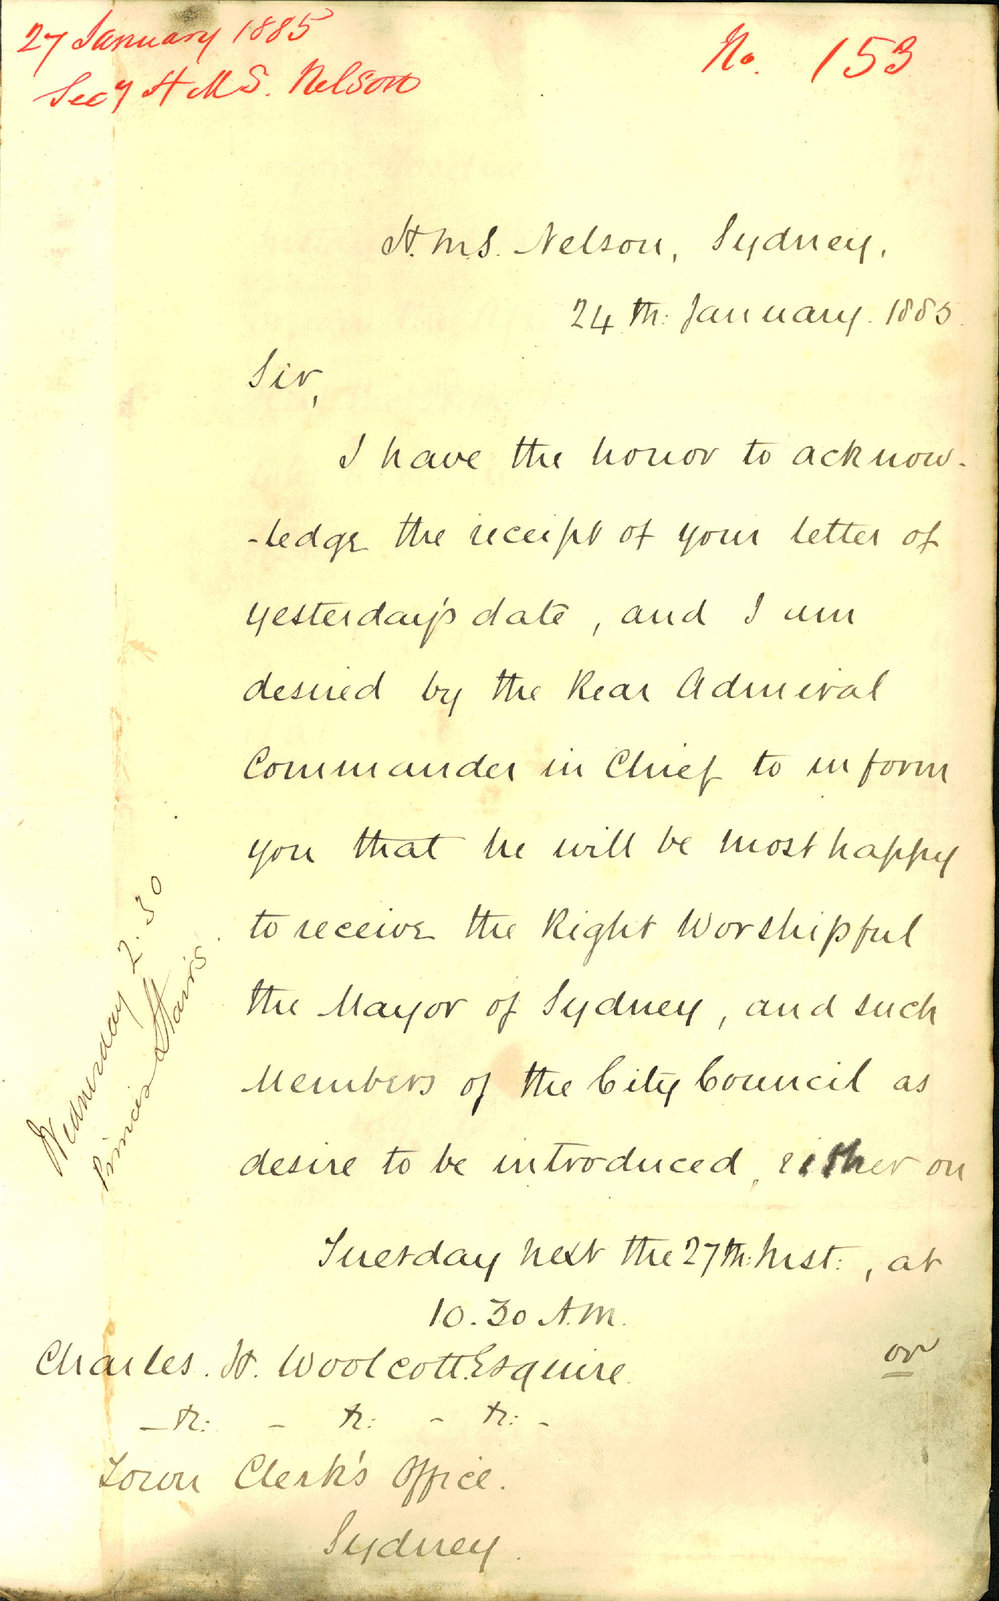 27 January 1885
Secy H M S. Nelson
No. 153
H.M.S. Nelson, Sydney,
24th: January. 1885
Sir,
I have the honor to acknow-
-ledge the receipt of your letter of
yesterday's date, and I am
desired by the Rear Admiral
Commander in Chief to inform
you that he will be most happy
to receive the Right Worshipful
the Mayor of Sydney, and such
Members of the City Council as
desire to be introduced, either on
Tuesday next the 27th: Inst:, at
10.30 A.M.
or
Charles. H. Woolcott. Esquire.
- &c: - &c: - &c: -
Town Clerk's Office.
Sydney.
Wednesday 2.30
Princes Stairs.